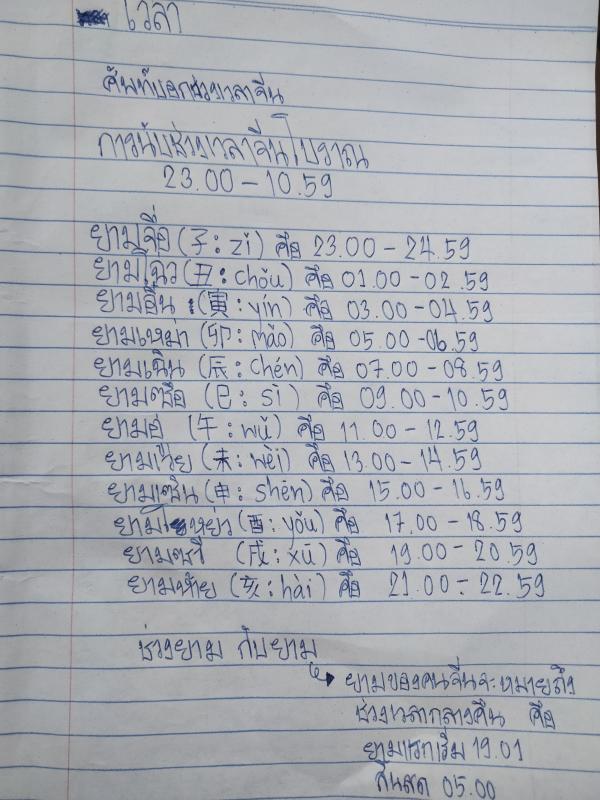 เวลา
ศัพท์บอกช่วงเวลาจีน
การนับช่วงเวลาจีนโบราณ
23.00 – 10.59
ยามจื่อ (子: zǐ) คือ 23.00 – 24.59
ยามโฉ่ว (丑: chǒu) คือ 01.00 – 02.59
ยามอิ๋น (寅: yín) คือ 03.00 – 04.59
ยามเหม่า (卯: mǎo) คือ 05.00 – 06.59
ยามเฉิน (辰: chén) คือ 07.00 – 08.59
ยามซื่อ (巳: sì) คือ 09.00 – 10.59
ยามอู่ (午: wǔ) คือ 11.00 – 12.59
ยามเว่ย (未: wèi) คือ 13.00 – 14.59
ยามเซิน (申: shēn) คือ 15.00 – 16.59
ยามโหย่ว (酉: yǒu) คือ 17.00 – 18.59
ยามซวี (戌: xū) คือ 19.00 – 20.59
ยามห้าย (亥: hài) คือ 21.00 – 22.59
ช่วงยาม กับ ยาม
ยามของคนจีนจะหมายถึง
ช่วงเวลากลางคืน คือ
ยามแรกเริ่ม 19.01
สิ้นสุด 05.00